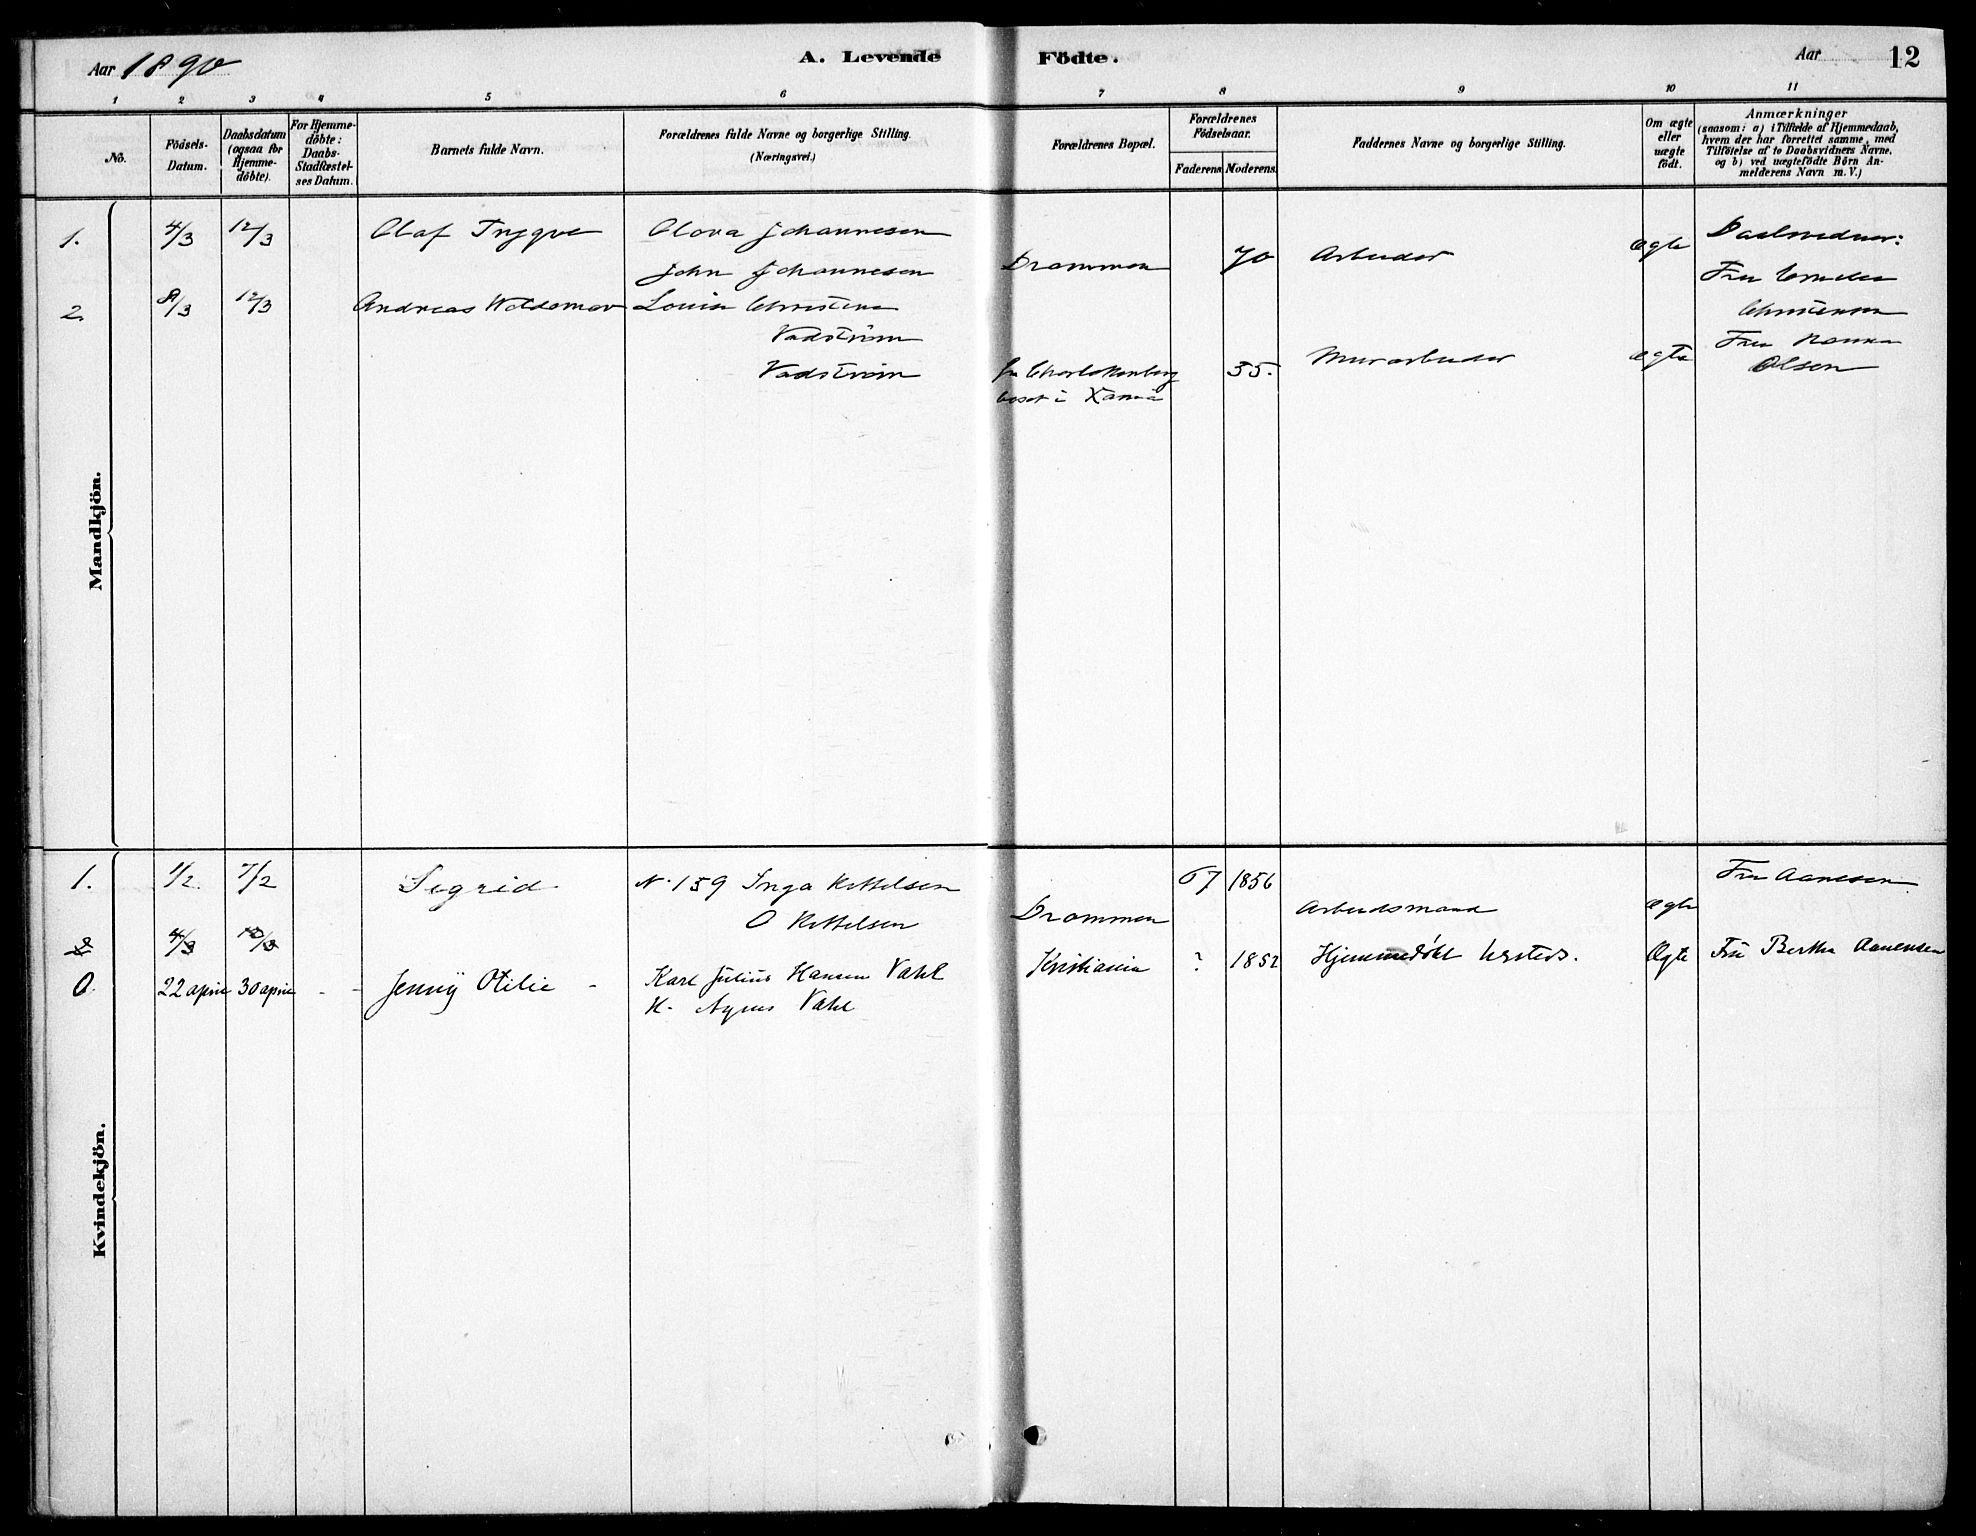 Aar 1890
A. Levende
Födte.
Aar
12
1 2 3 4 5 6 7 8 9 10 11
No.
Födsels-
Datum.
Daabsdatum
(ogsaa for
Hjemme-
döbte).
For Hjemme-
döbte:
Daabs-
Stadfæstel-
ses Datum.
Barnets fulde Navn.
Forældrenes fulde Navne og borgerlige Stilling.
(Næringsvei.)
Forældrenes Bopæl.
Forældrenes
Födselsaar.
Faderens Moderens
Faddernes Navne og borgerlige Stilling.
Om ægte
eller
uægte
födt.
Anmærkninger
(saasom: a) i Tilfælde af Hjemmedaab,
hvem der har forrettet samme, med
Tilföielse af to Daabsvidners Navne,
og b) ved uægtefödte Börn An-
melderens Navn m. V.)
Mandkjön.
1. 4/3 12/3 Olaf Trygve Olova Johannesen
John Johannesen Drammen 70 Arbeider ægte
2. 8/3 12/3 Andreas Woldemar Louise Christine
Vadström
Vadström fra Charlottenberg 35. Murarbeider ægte
bosat i Xania
Fru
Christensen
Fru Hanna
Olsen
Kvindekjön.
1. 1/2 7/2 Sigrid N. 159 Inga Kittelsen 67 1856 Fru Aanesen
O Kittelsen Drammen Arbeidsmand ægte
2 4/3 12/3
0. 22 april 30 april - - Jenny Otilie - Karl Julius Hansen Vahl Kristiania ? 1852 Hjemmedöbt Ægte Fru Bertha Aanensen
H. Agnes Vahl